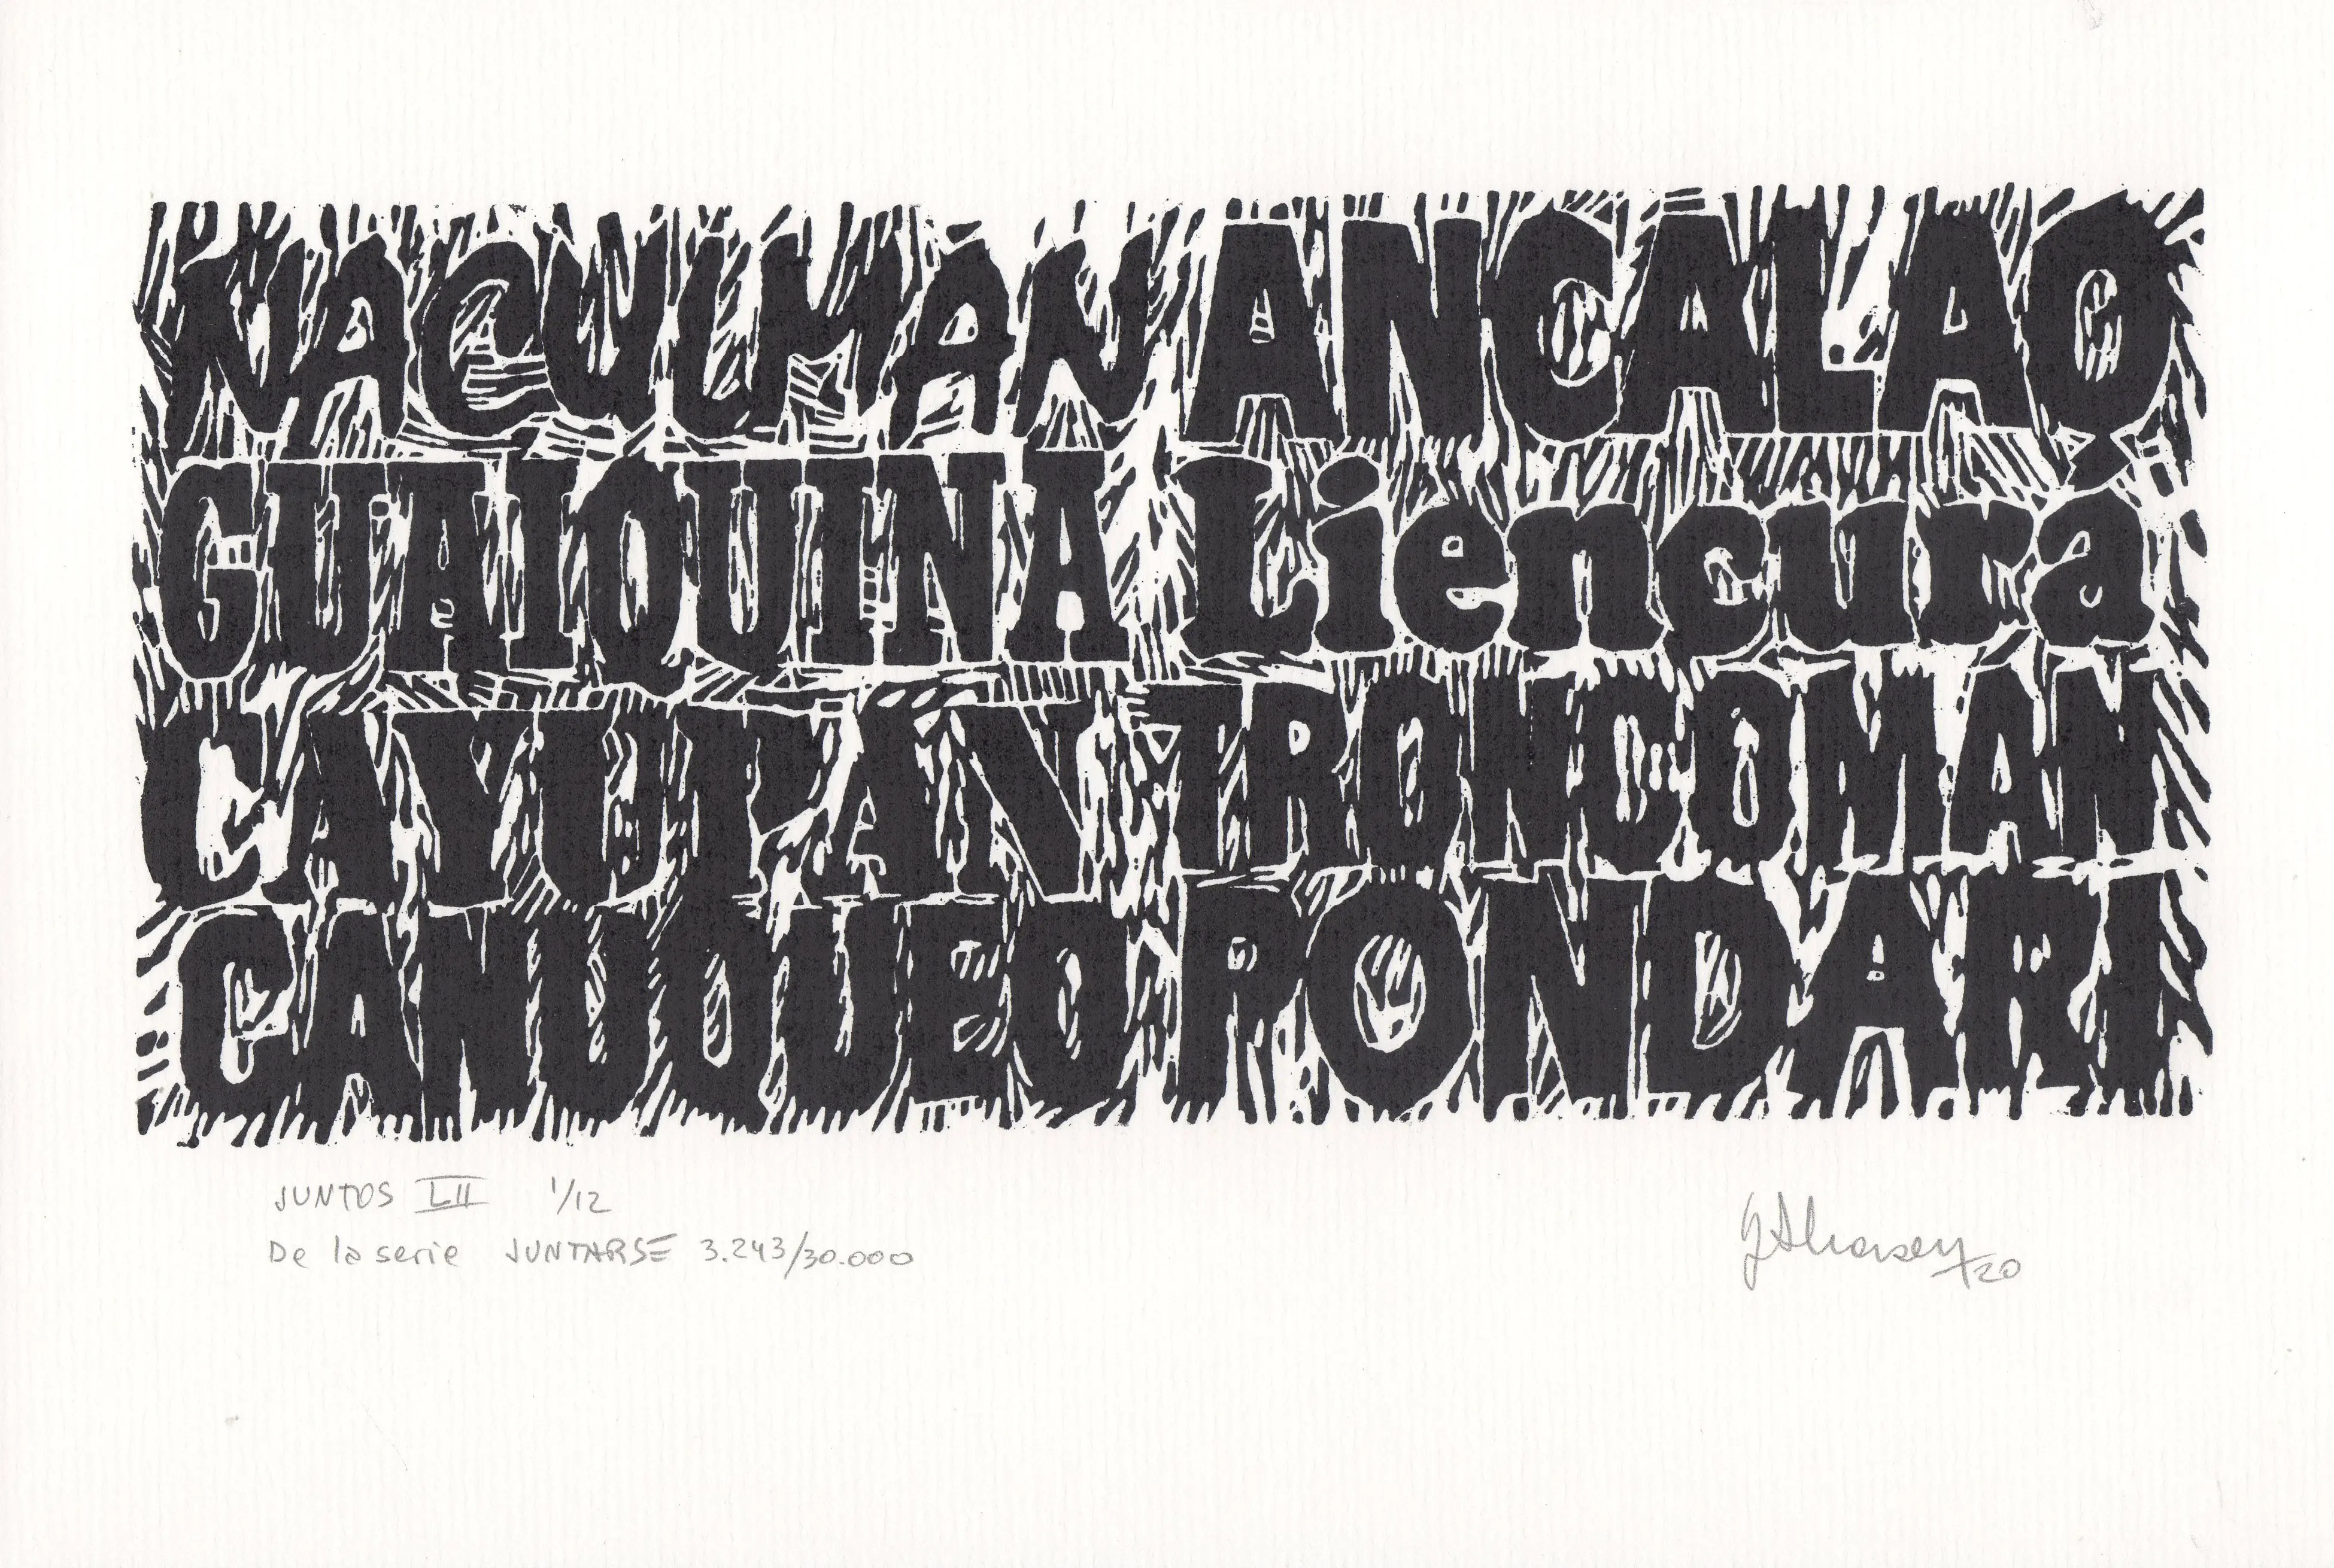 NACULMAN ANCALAO
GUAIQUINA Liencurá
CAYUPAN TRONCOMAN
CANUQUEO PONDARI
JUNTOS LII 1/12
De la serie JUNTARSE 3.243/30.000
20